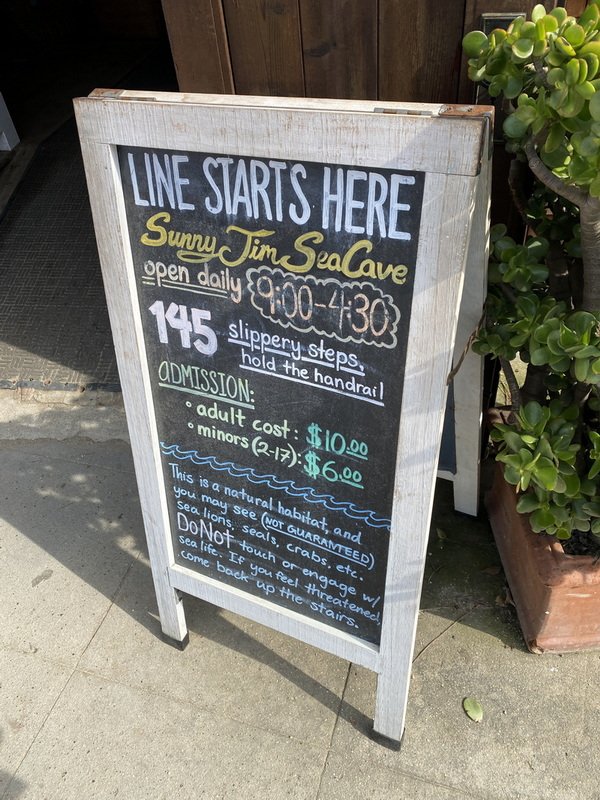 LINE STARTS HERE
Sunny Jim Sea Cave
open daily 9:00-4:30
145 slippery steps,
hold the handrail
ADMISSION:
• adult cost: $10.00
• minors (2-17): $6.00
This is a natural habitat, and
you may see (NOT GUARANTEED)
sea lions, seals, crabs, etc.
Do NOT touch or engage w/
sea life. If you feel threatened,
come back up the stairs.